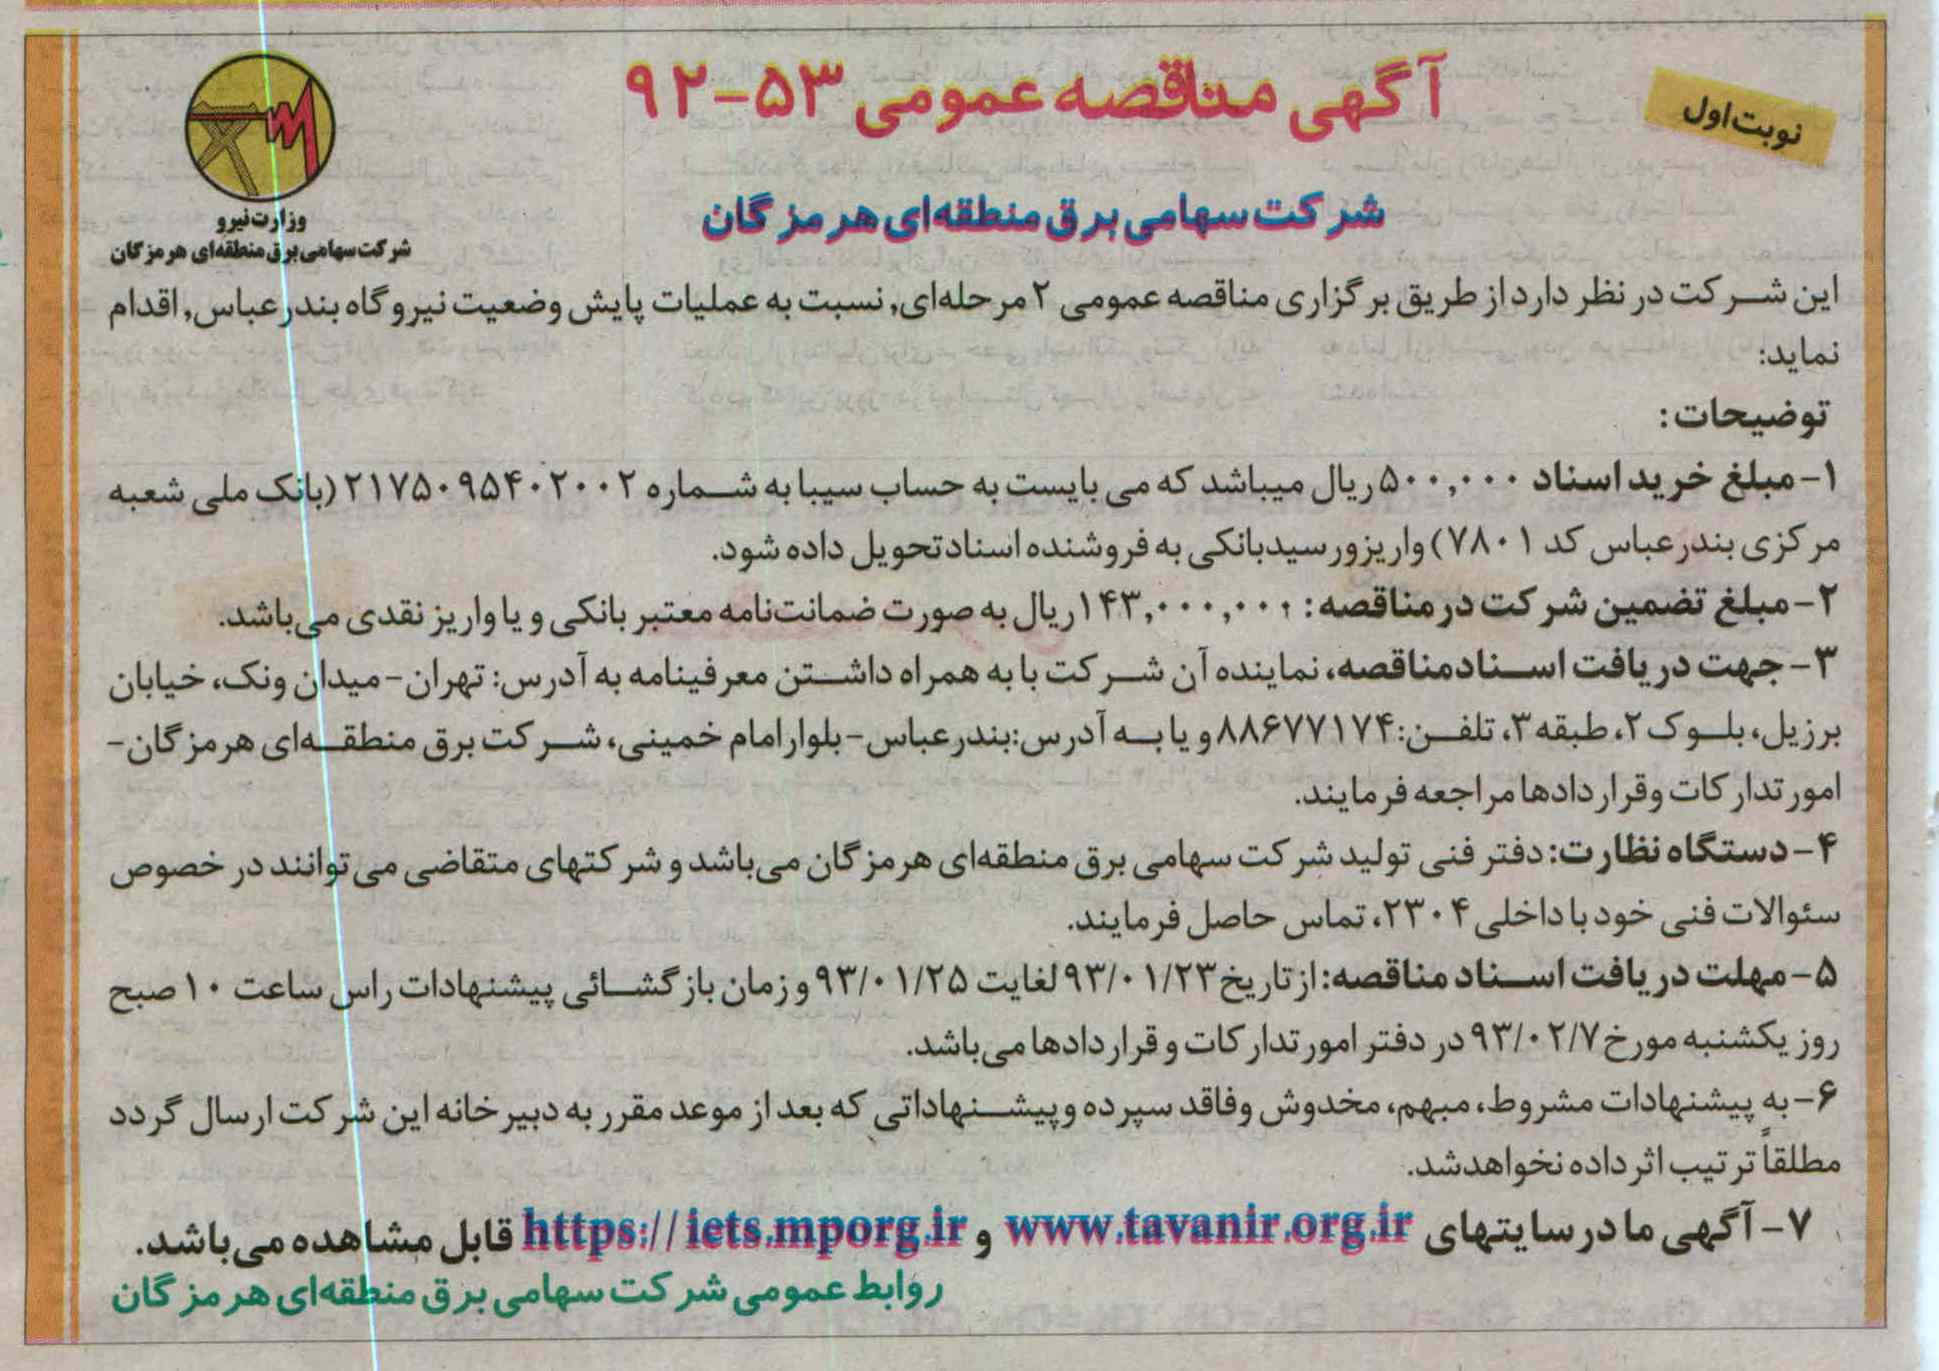 نوبت اول
آگهی مناقصه عمومی ۵۳-۹۲
شرکت سهامی برق منطقه‌ای هرمزگان
وزارت نیرو
شرکت سهامی برق منطقه‌ای هرمزگان
این شرکت در نظر دارد از طریق برگزاری مناقصه عمومی ۲ مرحله‌ای, نسبت به عملیات پایش وضعیت نیروگاه بندرعباس, اقدام
نماید:
توضیحات:
۱- مبلغ خرید اسناد ۵۰۰,۰۰۰ ریال میباشد که می بایست به حساب سیبا به شماره ۲۱۷۵۰۹۵۴۰۲۰۰۲ (بانک ملی شعبه
مرکزی بندرعباس کد ۷۸۰۱) واریز ورسید بانکی به فروشنده اسناد تحویل داده شود.
۲- مبلغ تضمین شرکت در مناقصه: ۱۴۳,۰۰۰,۰۰۰ ریال به صورت ضمانت‌نامه معتبر بانکی و یا واریز نقدی می‌باشد.
۳- جهت دریافت اسناد مناقصه، نماینده آن شرکت با به همراه داشتن معرفینامه به آدرس: تهران- میدان ونک، خیابان
برزیل، بلوک ۲، طبقه ۳، تلفن: ۸۸۶۷۷۱۷۴ و یا به آدرس: بندرعباس- بلوار امام خمینی، شرکت برق منطقه‌ای هرمزگان-
امور تدارکات وقراردادها مراجعه فرمایند.
۴- دستگاه نظارت: دفتر فنی تولید شرکت سهامی برق منطقه‌ای هرمزگان می‌باشد و شرکتهای متقاضی می‌توانند در خصوص
سئوالات فنی خود با داخلی ۲۳۰۴، تماس حاصل فرمایند.
۵- مهلت دریافت اسناد مناقصه: از تاریخ ۹۳/۰۱/۲۳ لغایت ۹۳/۰۱/۲۵ و زمان بازگشائی پیشنهادات راس ساعت ۱۰ صبح
روز یکشنبه مورخ ۹۳/۰۲/۷ در دفتر امور تدارکات و قراردادها می‌باشد.
۶- به پیشنهادات مشروط، مبهم، مخدوش وفاقد سپرده وپیشنهاداتی که بعد از موعد مقرر به دبیرخانه این شرکت ارسال گردد
مطلقاً ترتیب اثر داده نخواهدشد.
۷- آگهی ما در سایتهای www.tavanir.org.ir و https://iets.mporg.ir قابل مشاهده می‌باشد.
روابط عمومی شرکت سهامی برق منطقه‌ای هرمزگان